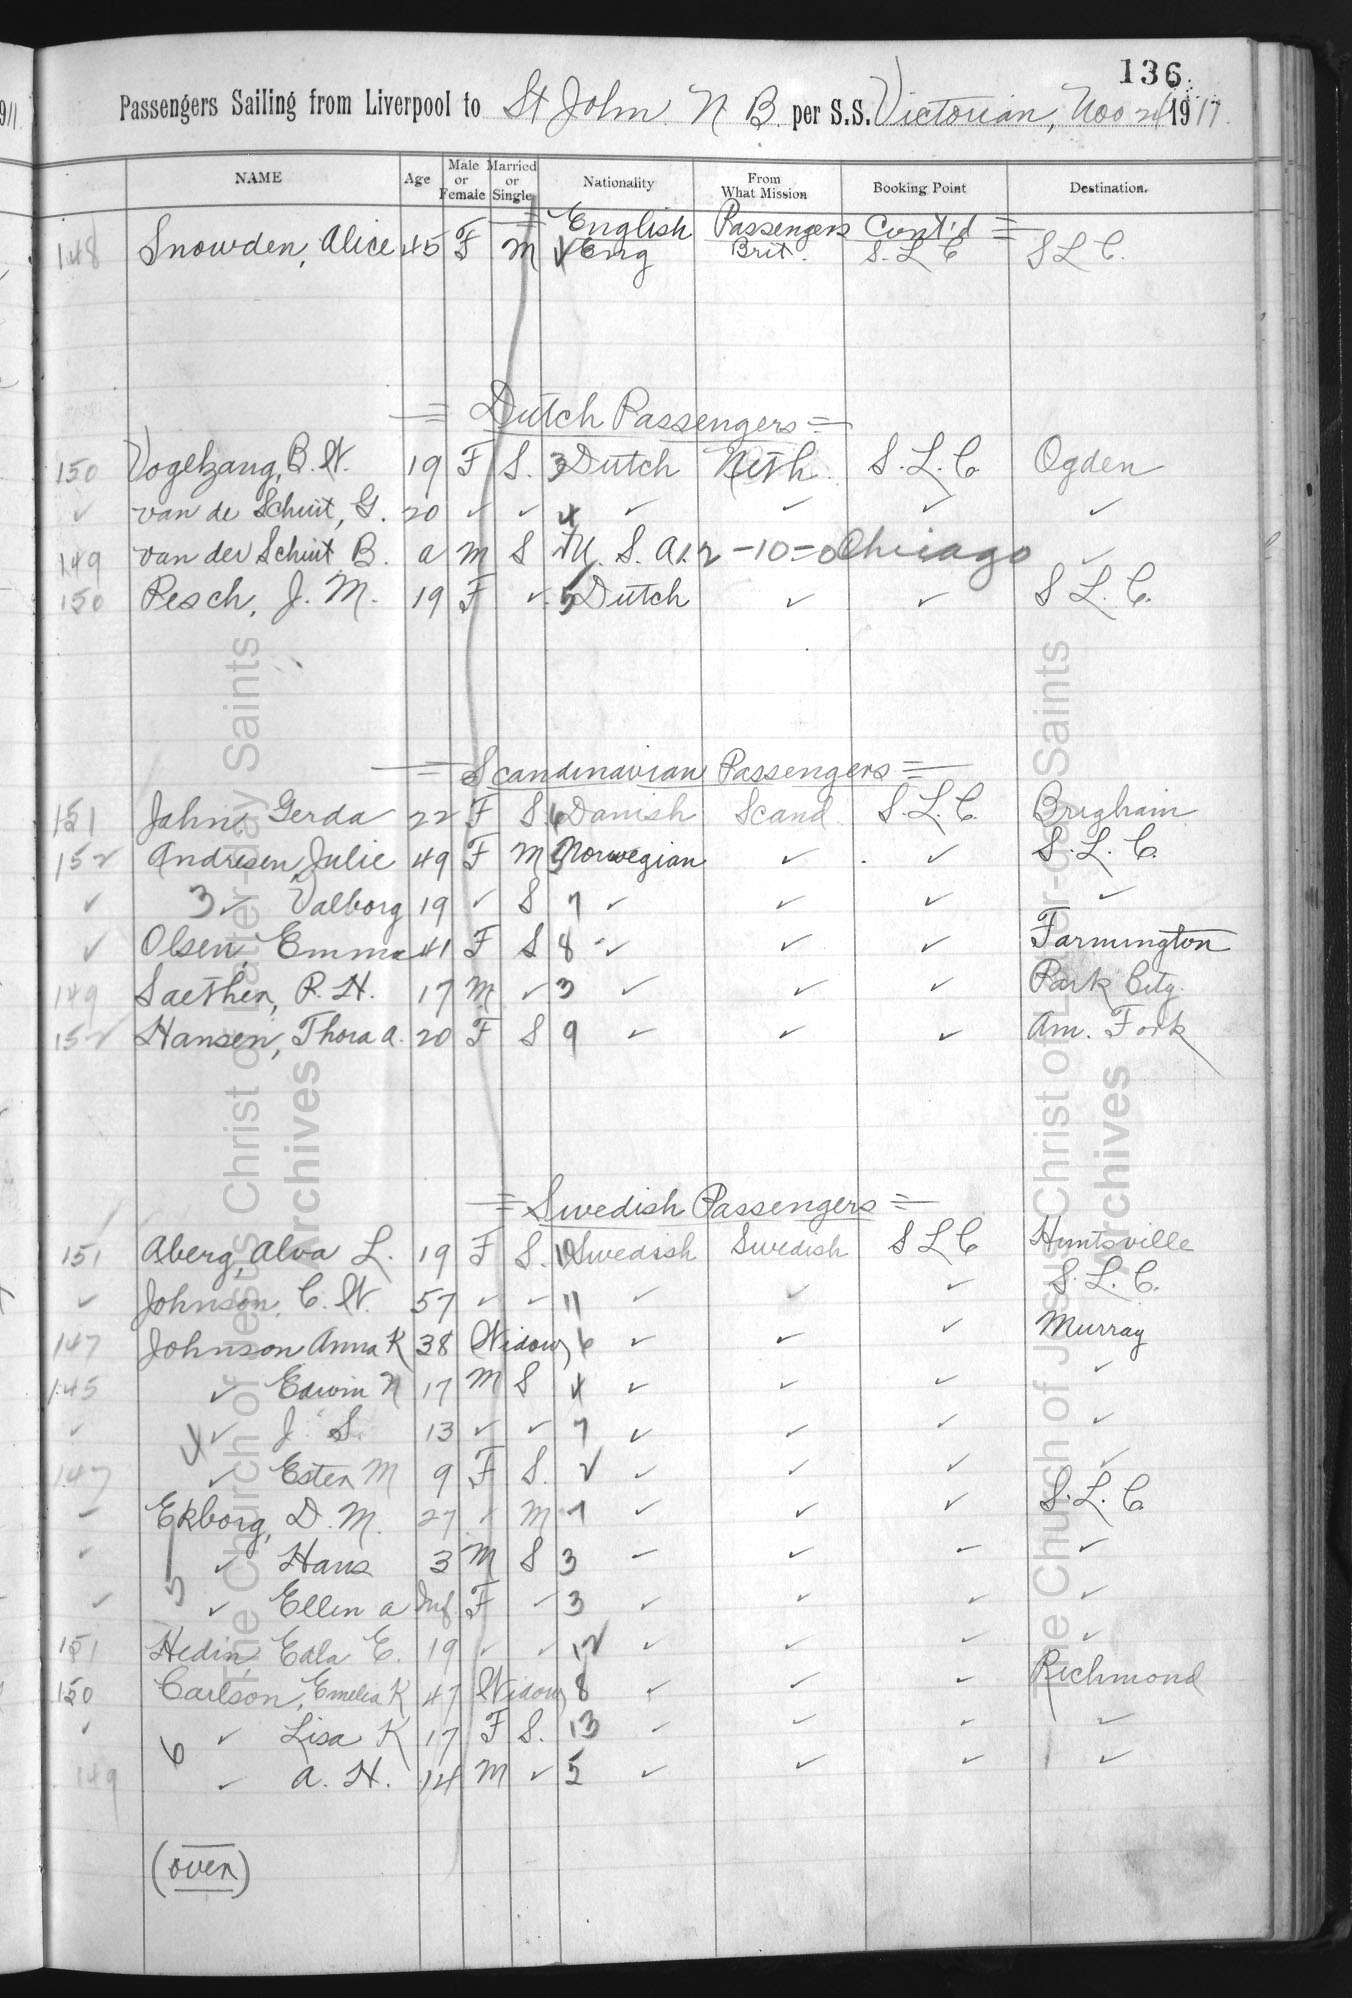 136
911
Passengers Sailing from Liverpool to St John N B. per S.S. Victorian, Nov 24 1911
NAME Age Male or Female Married or Single Nationality From What Mission Booking Point Destination.
= English Passengers Cont'd =
148 Snowden, Alice 45 F M Eng Brit. S. L C S L C.
= Dutch Passengers =
150 Vogelzang, B. W. 19 F S. 3 Dutch Neth. S. L. C Ogden
✓ van de Schuit, G. 20 ✓ ✓ 4 ✓ ✓ ✓ ✓
149 van der Schuit B. a m S U. S. A. 12-10-0 Chicago ✓
150 Pesch, J. M. 19 F ✓ 5 Dutch ✓ ✓ S L. C.
= Scandinavian Passengers =
151 Jahn, Gerda 22 F S 6 Danish Scand. S. L. C. Brigham
152 Andresen, Julie 49 F M 5 Norwegian ✓ ✓ S. L. C.
✓ 3 ✓ Valborg 19 ✓ S 7 ✓ ✓ ✓ ✓
✓ Olsen, Emma 41 F S 8 ✓ ✓ ✓ Farmington
149 Saether, R. H. 17 M ✓ 3 ✓ ✓ ✓ Park City.
152 Hansen, Thora A. 20 F S 9 ✓ ✓ ✓ Am. Fork
= Swedish Passengers =
151 Aberg, Alva L. 19 F S. 10 Swedish Swedish S L C Huntsville
✓ Johnson, C. W. 57 ✓ ✓ 11 ✓ ✓ ✓ S. L. C.
147 Johnson Anna K 38 Widow 6 ✓ ✓ ✓ Murray
145 ✓ Edwin N 17 M S 4 ✓ ✓ ✓ ✓
✓ 4 ✓ J. S. 13 ✓ ✓ 7 ✓ ✓ ✓ ✓
147 ✓ Ester M 9 F S. 2 ✓ ✓ ✓ ✓
✓ Ekborg, D. M. 27 ✓ M 7 ✓ ✓ ✓ S. L. C
✓ ✓ Hans 3 M S 3 ✓ ✓ ✓ ✓
✓ 5 ✓ Ellen A Inf F ✓ 3 ✓ ✓ ✓ ✓
151 Hedin, Edla E. 19 ✓ ✓ 12 ✓ ✓ ✓ ✓
150 Carlson, Emelia K 47 Widow 8 ✓ ✓ ✓ Richmond
✓ 6 ✓ Lisa K 17 F S. 13 ✓ ✓ ✓ ✓
149 ✓ A. H. 14 M ✓ 5 ✓ ✓ ✓ ✓
(over)
The Church of Jesus Christ of Latter-day Saints
Archives
The Church of Jesus Christ of Latter-day Saints
Archives